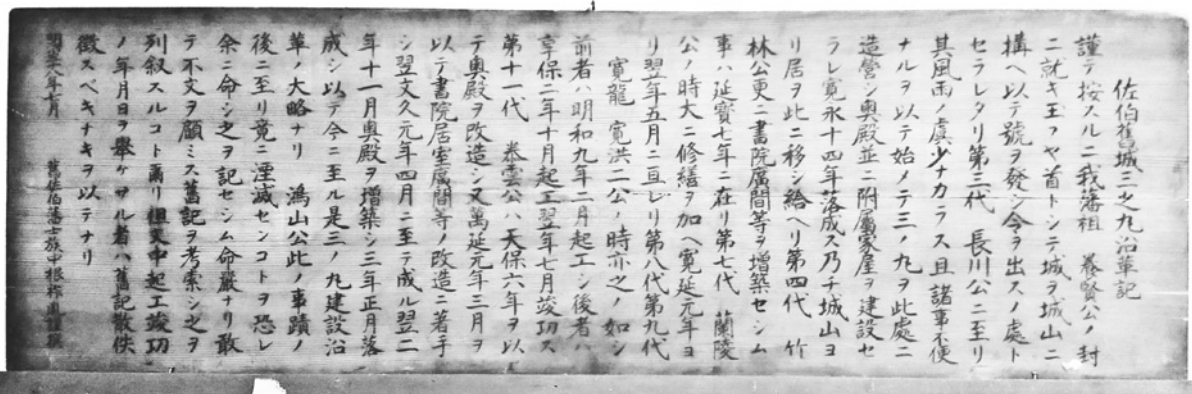 佐伯舊城三之丸沿革記
謹テ按スルニ我藩祖　養賢公ノ封
ニ就キ玉フヤ首トシテ城ヲ城山ニ
構ヘ以テ號ヲ發シ令ヲ出スノ處ト
セラレタリ第三代　長川公ニ至リ
其風雨ノ虞少ナカラス且諸事不便
ナルヲ以テ始メテ三ノ丸ヲ此處ニ
造營シ奥殿並ニ附属家屋ヲ建設セ
ラレ寛永十四年落成ス乃チ城山ヨ
リ居ヲ此ニ移シ給ヘリ第四代　竹
林公更ニ書院廣間等ヲ增築セシム
事ハ延寶七年ニ在リ第七代　蘭陵
公ノ時大ニ修繕ヲ加ヘ寛延元年ヨ
リ翌年五月ニ亘レリ第八代第九代
寛龍　寛洪二公ノ時亦之ノ如シ
前者ハ明和九年二月起工シ後者ハ
享保二年十月起工翌年七月竣功ス
第十一代　泰雲公ハ天保六年ヲ以
テ奥殿ヲ改造シ又萬延元年三月ヲ
以テ書院居室廣間等ノ改造ニ著手
シ翌文久元年四月ニ至テ成ル翌二
年十一月奥殿ヲ增築シ三年正月落
成シ以テ今ニ至ル是三ノ丸建設沿
革ノ大略ナリ　鴻山公此ノ事蹟ノ
後ニ至リ竟ニ湮滅センコトヲ恐レ
余ニ命シ之ヲ記セシム命嚴ナリ敢
テ不文ヲ顧ミス舊記ヲ考索シ之ヲ
列叙スルコト爾リ但文中起工竣功
ノ年月日ヲ舉ケサル者ハ舊記散佚
徴スベキナキヲ以テナリ
明治　八年十月　舊佐伯藩士族中根祚胤謹撰